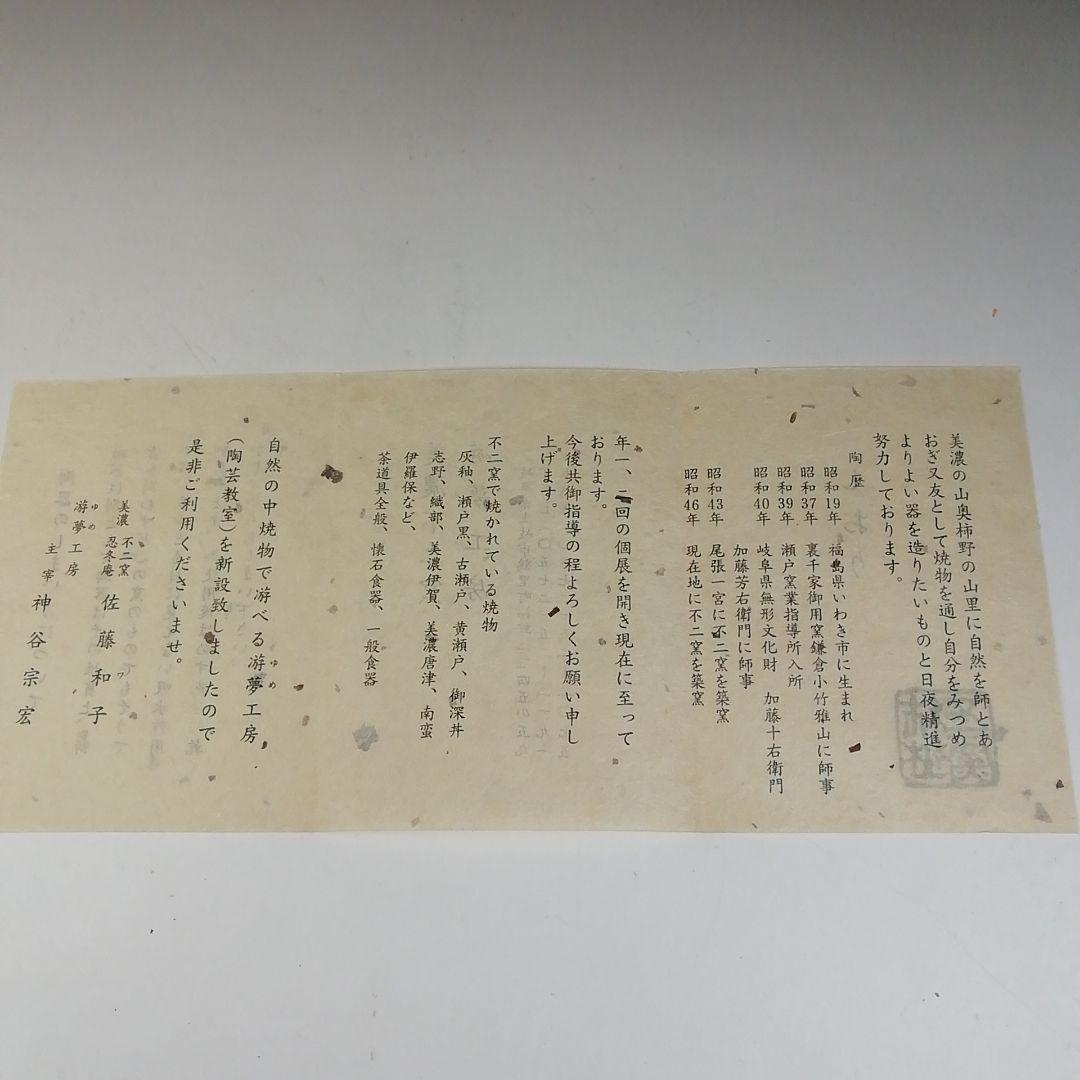 美濃の山奥柿野の山里に自然を師とあ
おぎ又友として焼物を通し自分をみつめ
よりよい器を造りたいものと日夜精進
努力しております。
陶歴
昭和19年 福島県いわき市に生まれ
昭和37年 裏千家御用窯鎌倉小竹雅山に師事
昭和39年 瀬戸窯業指導所入所
昭和40年 岐阜県無形文化財 加藤十右衛門
加藤芳右衛門に師事
昭和43年 尾張一宮に不二窯を築窯
昭和46年 現在地に不二窯を築窯
年一、二回の個展を開き現在に至って
おります。
今後共御指導の程よろしくお願い申し
上げます。
不二窯で焼かれている焼物
灰釉、瀬戸黒、古瀬戸、黄瀬戸、御深井
志野、織部、美濃伊賀、美濃唐津、南蛮
伊羅保など、
茶道具全般、懐石食器、一般食器
自然の中焼物で游べる游夢工房
ゆめ
(陶芸教室)を新設致しましたので
是非ご利用くださいませ。
美濃 不二窯
忍冬庵 佐藤和子
ゆめ
游夢工房
主宰 神谷宗宏